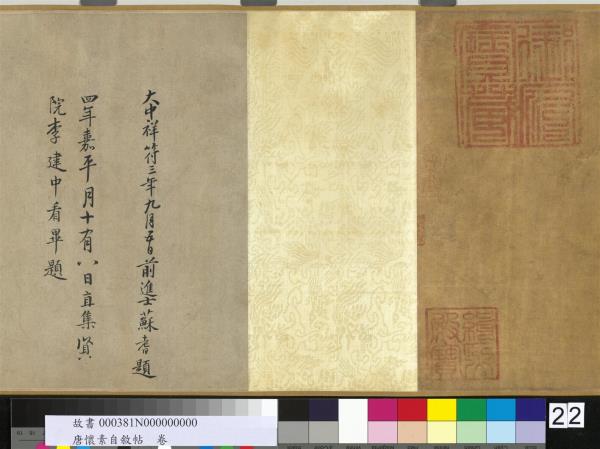 緝熙殿寶
大中祥符三年九月五日前進士蘇耆題
四年嘉平月十有八日直集賢
院李建中看畢題
22
故書 000381N000000000
唐懷素自敘帖 卷